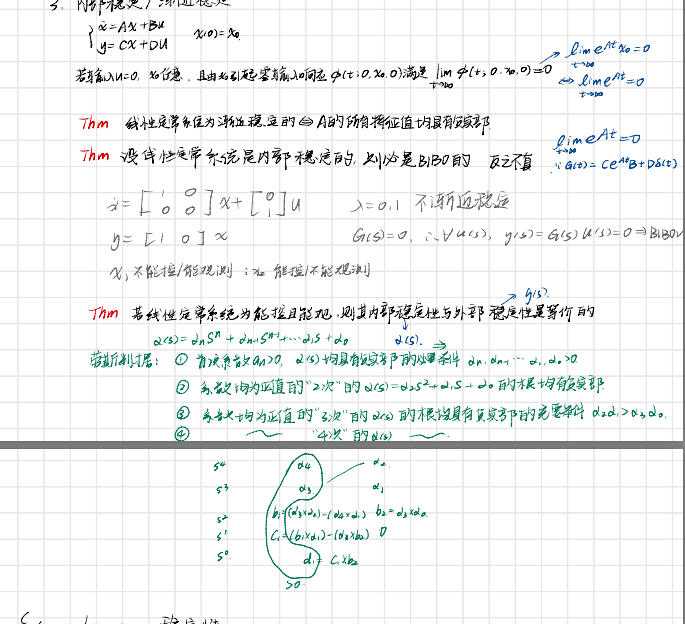 3. 内部稳定/渐近稳定
{ ẋ=Ax+Bu
y=Cx+Du x(0)=x₀
若输入u=0, x₀任意, 且由x₀引起零输入响应φ(t;0,x₀,0)满足 lim t→∞ φ(t;0,x₀,0)=0 → lim t→∞ e^{At}x₀=0
⇔ lim t→∞ e^{At}=0
Thm 线性定常系统为渐近稳定的⇔A的所有特征值均具有负实部.
Thm 设线性定常系统是内部稳定的, 则必是BIBO的 反之不真 lim t→∞ e^{At}=0
∵ G(t)=Ce^{At}B+Dδ(t)
ẋ=[1 0
0 0]x+[0
1]u λ=0,1 不渐近稳定
y=[1 0]x G(s)=0, ∴∀u(s), y(s)=G(s)u(s)=0⇒BIBO
x₁不能控/能观测; x₂能控/不能观测
Thm 若线性定常系统为能控且能观, 则其内部稳定性与外部稳定性是等价的 → g(s).
↓ α(s).
α(s)=αₙsⁿ+αₙ₋₁sⁿ⁻¹+…α₁s+α₀ ⇒
劳斯判据: ① 首项系数αₙ>0, α(s)均具有负实部的必要条件 αₙ,αₙ₋₁…α₁,α₀>0
② 系数均为正值的"2次"的α(s)=α₂s²+α₁s+α₀的根均有负实部
③ 系数均为正值的"3次"的α(s)的根均具有负实部的充要条件 α₂α₁>α₃α₀.
④ ～ "4次"的α(s) ～
s⁴ α₄ α₂
s³ α₃ α₁
s² b₁=(α₃×α₂)-(α₄×α₁) b₂=α₃×α₀
s¹ C₁=(b₁×α₁)-(α₃×b₂) 0
s⁰ d₁=C₁×b₂
>0